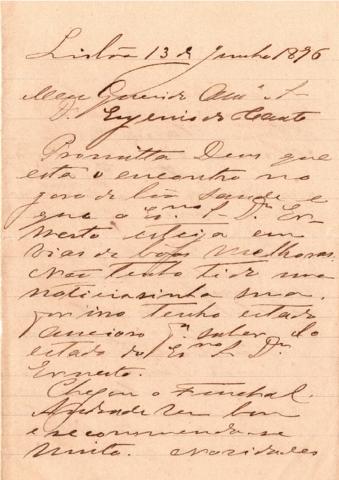 Lisbôa 13 de Junho 1896
Meu Querido Amº Sr
D. Eugenio do Canto
Promitta Deus que
esta o encontre no
goso de bôa saude e
que o Exmo Sr Dr Er-
nesto esteja em
vias de boas melhoras.
Não tenho tido uma
noticiasinha sua.
por isso tenho estado
ancioso pª saber do
estado do Exmo Sr Dr
Ernesto.
Chegou o Funchal.
Andrade vem bom
e se recommenda-se
muito. Novidades